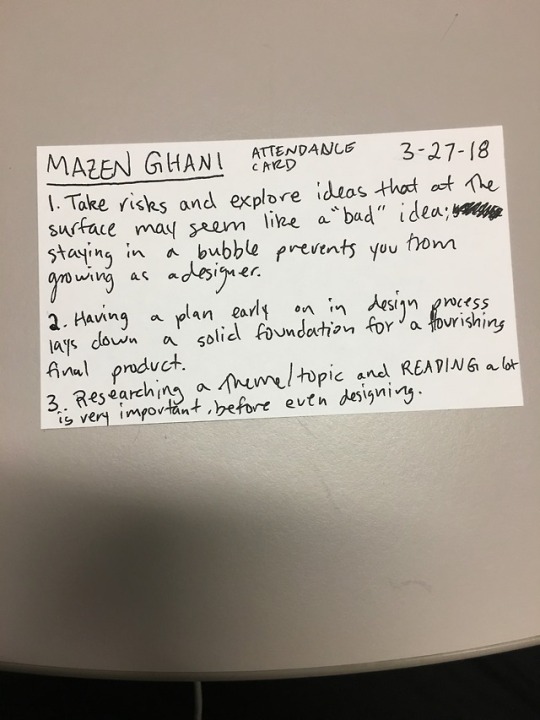 MAZEN GHANI ATTENDANCE CARD 3-27-18
1. Take risks and explore ideas that at the
surface may seem like a "bad" idea;
staying in a bubble prevents you from
growing as a designer.
2. Having a plan early on in design process
lays down a solid foundation for a flourishing
final product.
3. Researching a theme/topic and READING a lot
is very important, before even designing.